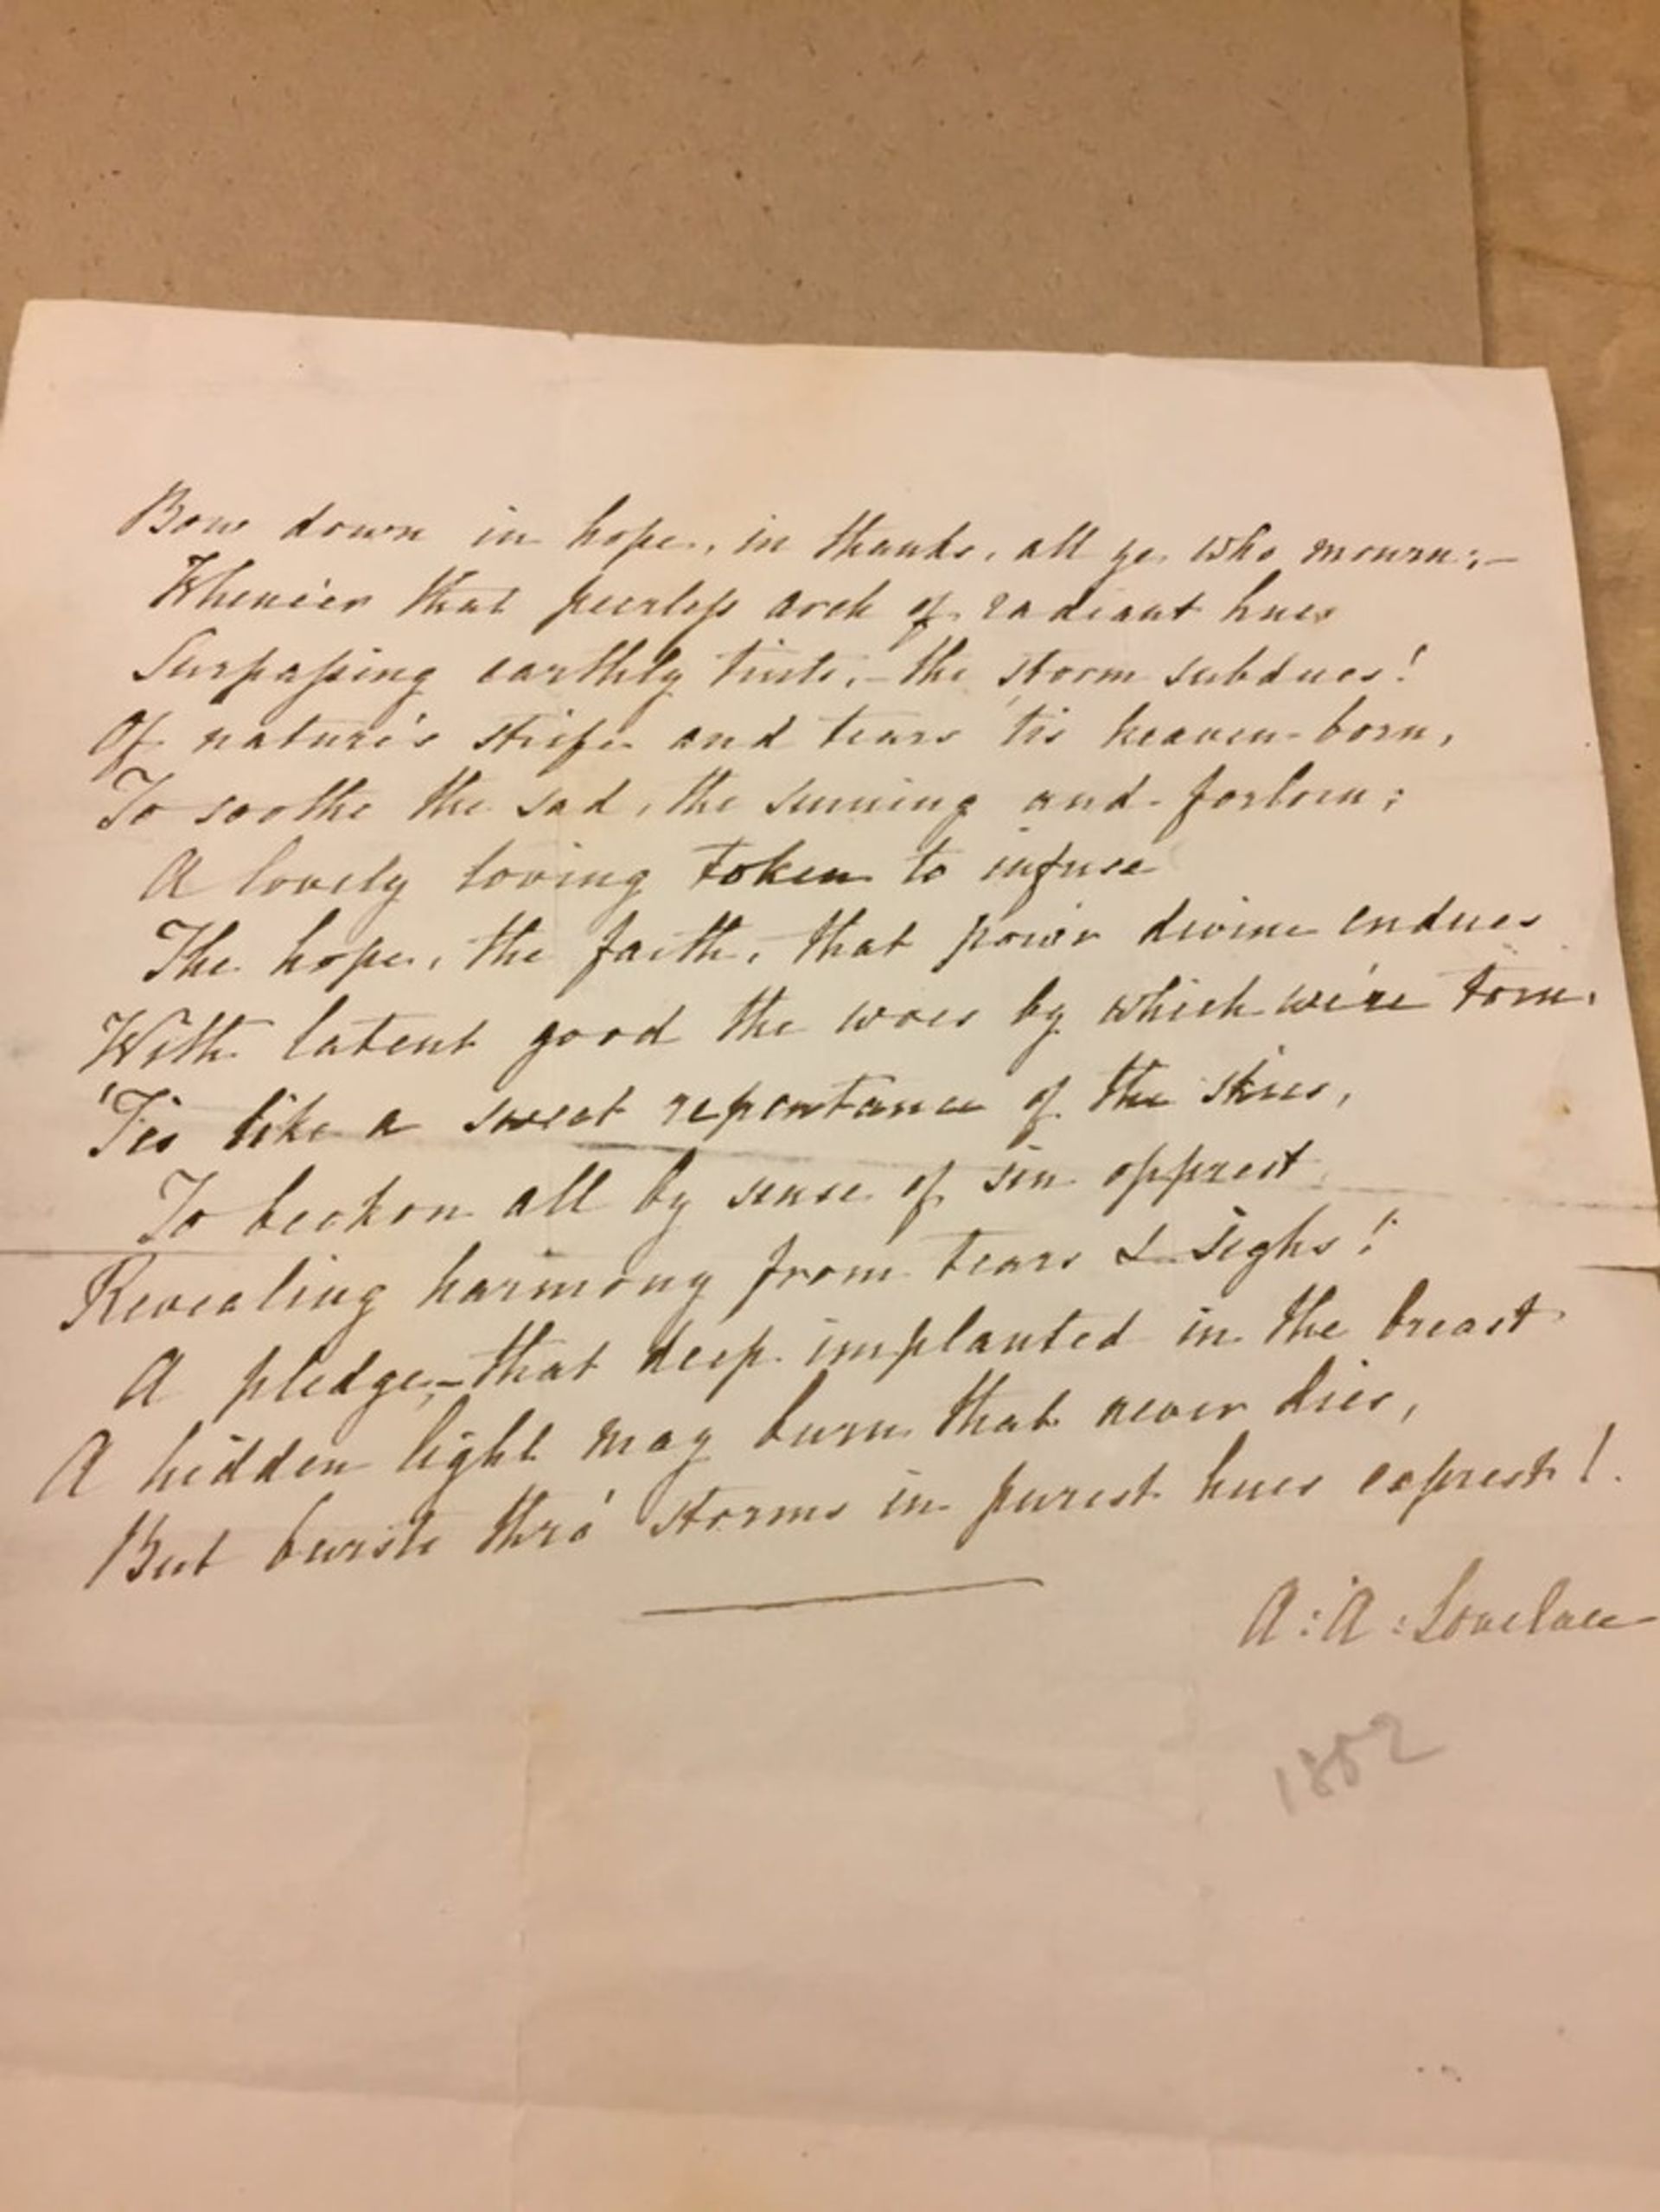 Bow down in hope, in thanks, all ye who mourn;–
Whene'er that peerless arch of radiant hues
Surpassing earthly tints,– the storm subdues!
Of nature's strife and tears 'tis heaven-born,
To soothe the sad, the sinning and forlorn;
A lovely loving token to infuse
The hope, the faith, that pow'r divine endues
With latent good the woes by which we're torn.
'Tis like a sweet repentance of the skies,
To beckon all by sense of sin opprest,
Revealing harmony from tears & sighs!
A pledge,–that deep implanted in the breast
A hidden light may burn that never dies,
But bursts thro' storms in purest hues exprest!
A: A: Lovelace
1852